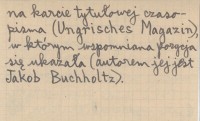 na karcie tytułowej czaso-
pisma (Ungrisches Magazin),
w którym wspomniana pozycja
się ukazała (autorem jej jest
Jakob Buchholtz).